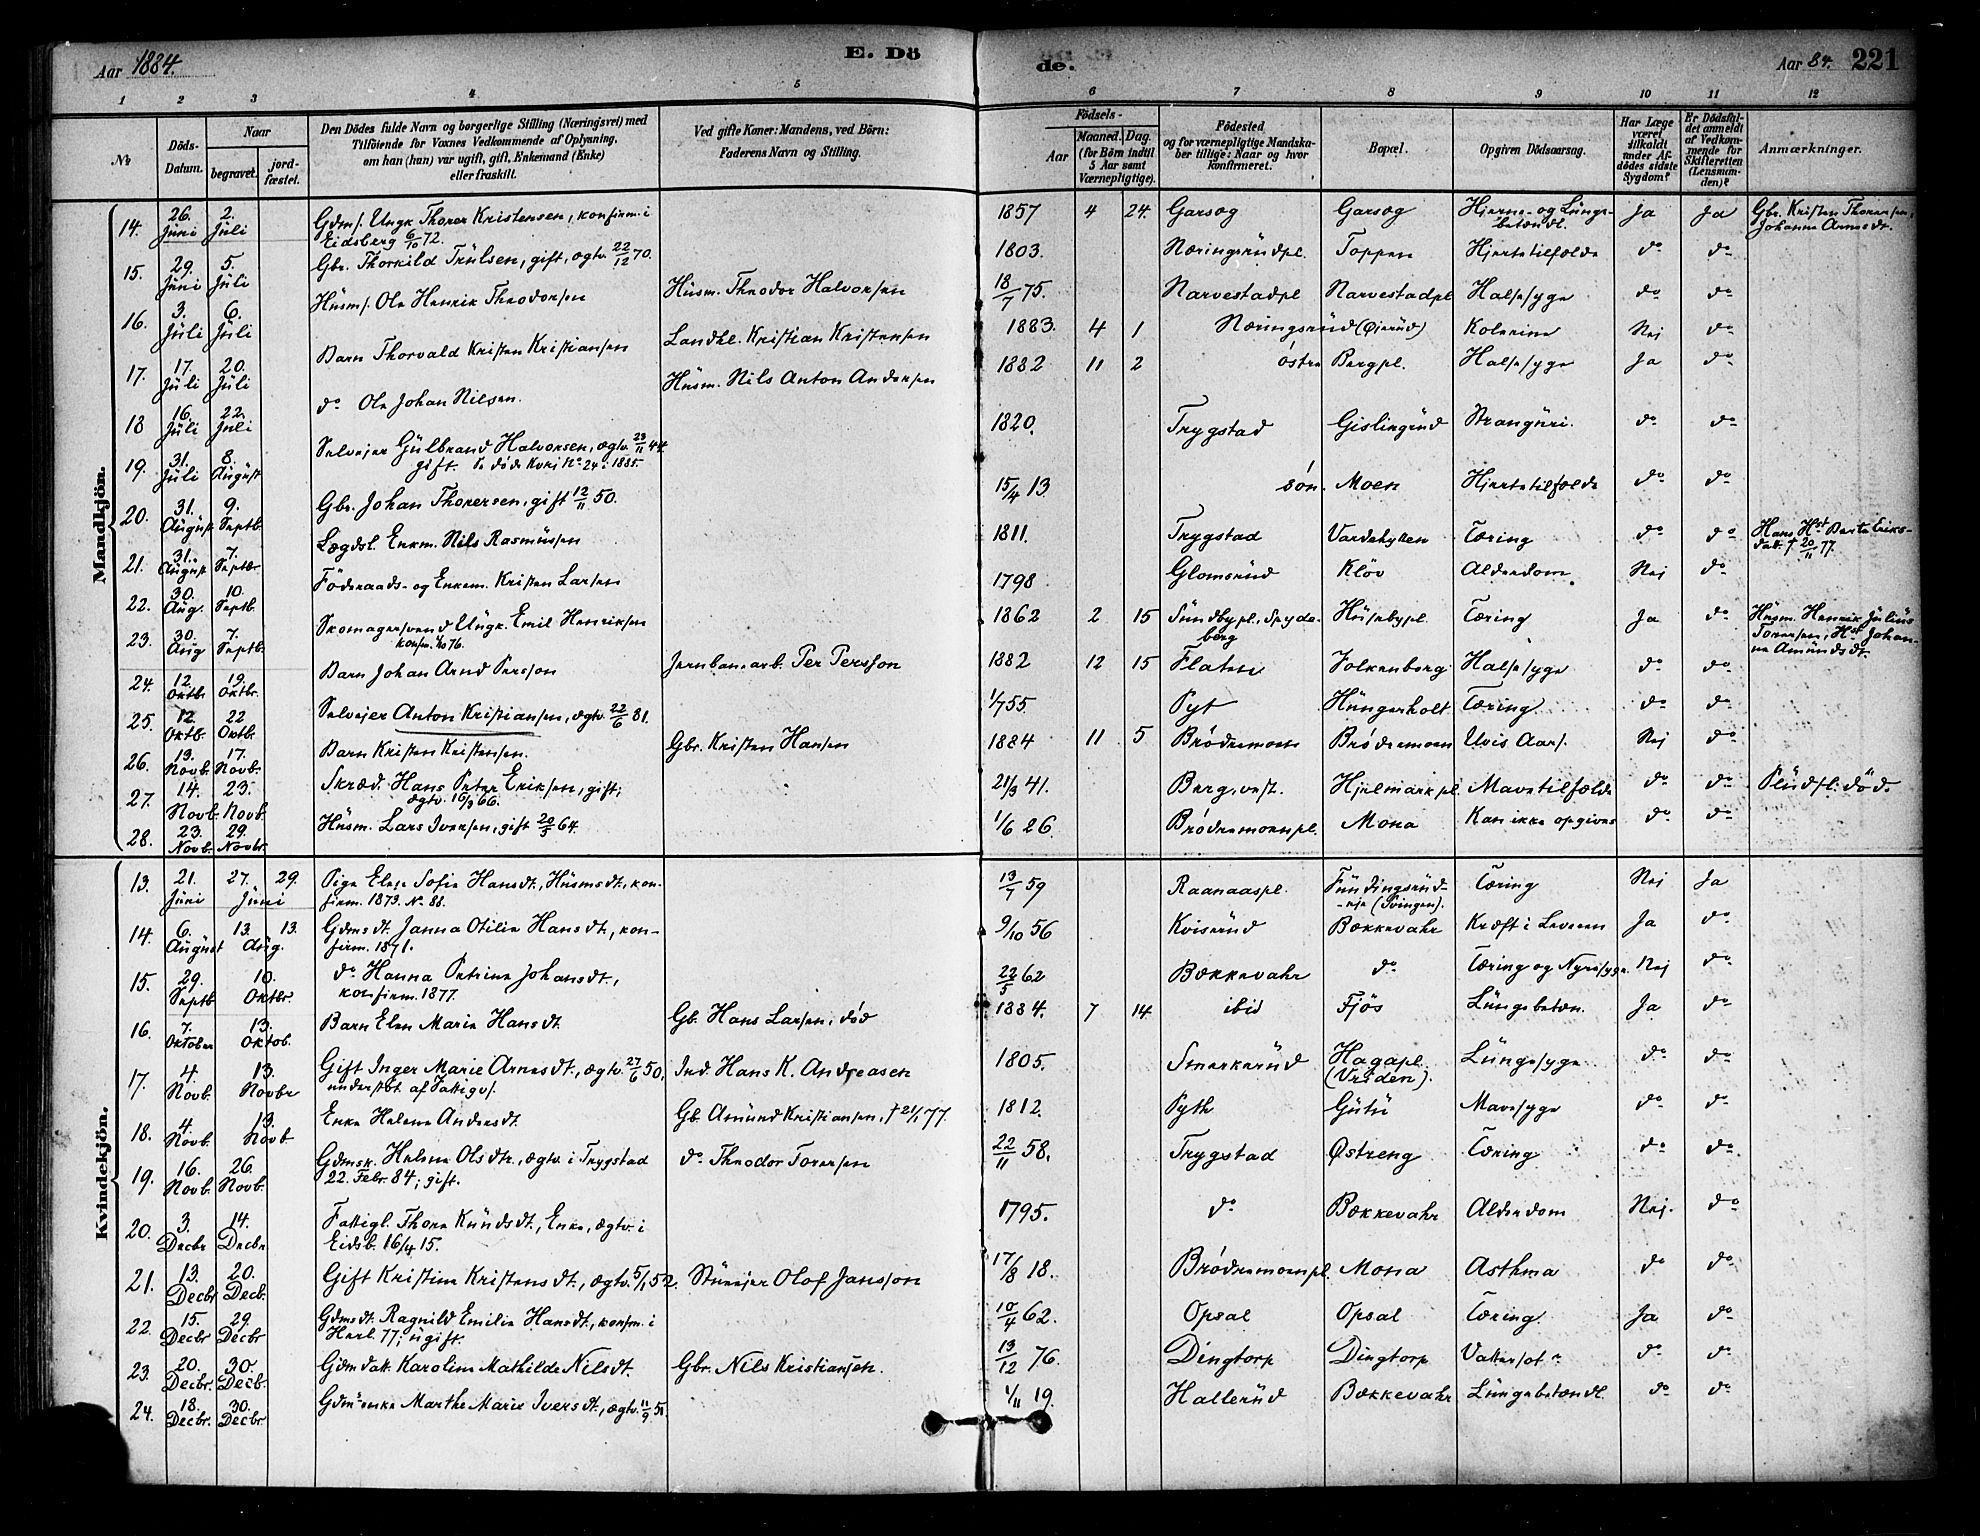 Aar 1884.
E. Dö
de.
Aar 84.
221
1 2 3 4 5 6 7 8 9 10 11 12
No
Döds-Datum.
Naar
begravet.
jord-fæstet.
Den Dödes fulde Navn og borgerlige Stilling (Næringsvei) med
Tilföiende for Voxnes Vedkommende af Oplysning,
om han (hun) var ugift, gift, Enkemand (Enke)
eller fraskilt.
Ved gifte Koner: Mandens, ved Börn:
Faderens Navn og Stilling.
Födsels-
Aar
Maaned. Dag.
(for Börn indtil
5 Aar samt
Værnepligtige).
Födested
og for værnepligtige Mandska-
ber tillige: Naar og hvor
konfirmeret.
Bopæl.
Opgiven Dödsaarsag.
Har Læge
været
tilkaldt
under Af-
dödes sidste
Sygdom?
Er Dödsfal-
det anmeldt
af Vedkom-
mende for
Skifteretten
(Lensman-
den)?
Anmærkninger.
Mandkjön.
14. 26. Juni 2. Juli Gdms. Ungk. Thorer Kristensen, konfirm. i Eidsberg 6/10 72. 1857 4 24. Garsog Garsog Hjerne- og Lunge-betændl. Ja Ja Gbr. Kristen Thoresen, Johanne Arnesdt.
15. 29. Juni 5. Juli Gbr. Thorkild Trulsen, gift, ægtv. 22/12 70. 1803. Næringsrudpl. Toppen Hjertetilfælde do do
16. 3. Juli 6. Juli Husms. Ole Henrik Theodorsen Husm. Theodor Halvorsen 18/7 75. Narvestadpl Narvestadpl Halssyge do do
17. 17. Juli 20. Juli Barn Thorvald Kristen Kristiansen Landhl. Kristian Kristensen 1883. 4 1 Næringsrud (Øierud) Kolerine Nej do
18 16. Juli 22. Juli do Ole Johan Nilsen. Husm. Nils Anton Andersen 1882 11 2 östre Bergpl. Halssyge Ja do
19. 31. Juli 8. August Selvejer Gulbrand Halvorsen, ægtv. 23/11 44. gift. Se döde Kvkj No 24 i 1885. 1820. Trygstad Gislingrud Stranguri. do do
20. 31. August 9. Septb. Gbr. Johan Thorersen, gift 12/11 50. 15/4 13 són. Moen Hjertetilfælde do do
21. 31. August 7. Septbr Lægdsl. Enkm. Nils Rasmussen 1811. Trygstad Vardehytten Tæring do do Hans Hst Berte Eriks-datt. † 20/10 77.
22. 30. Aug. 10. Septb. Föderaads- og Enkem. Kristen Larsen 1798 Glomsrud Klöv Alderdom. Nej do
23. 30. Aug 7. Septb. Skomagersvend Ungk. Emil Henriksen konfm. 1/10 76. 1862 2 15 Sundbypl. Spydeberg Husebypl. Tæring Ja do Husm. Henrik Julius Torersen, Hst Johanne Amundsdt.
24. 12. Oktbr 19. Oktbr. Barn Johan Arvd Persson Jernbanearb. Per Persson 1882 12 15 Flaten Volkenborg Halssyge do do
25. 12. Oktb. 22 Oktb. Selvejer Anton Kristiansen, ægtv. 22/6 81. 1/7 55 Pyt Hungerholt Tæring. do do
26. 13. Novb. 17. Novb. Barn Kristen Kristensen. Gbr. Kristen Hansen 1884 11 5 Brödremoen Brödremoen Uvis Aars. Nej do
27. 14. Novb. 23. Novb. Skræd. Hans Peter Eriksen, gift; ægtv. 16/3 66. 21/3 41. Berg, vest. Hjelmarkpl. Mavetilfælde do do Pludsl. död.
28. 23. Novb. 29. Novbr. Husm. Lars Iversen, gift 20/5 64. 1/6 26. Brödremoenpl. Mona Kan ikke opgives do do
Kvindekjön.
13. 21. Juni 27. Juni 29. Pige Elen Sofie Hansdt., Husmsdt., kon-firm. 1873. No 88. 13/1 59 Raanaaspl. Fundingsrud-eje (Svingen). Tæring Nej Ja
14. 6. August 13. Aug. 13. Gdmsdt. Janna Otilie Hansdt., kon-firm. 1871. 9/10 56 Kviserud Bækkevahr Kræft i Leveren Ja do
15. 29. Septb 10. Oktbr. do Hanna Petrine Johansdt., konfirm. 1877. 22/5 62 Bækkevahr do Tæring og Nyresyge. Nej do
16. 7. Oktober 13. Oktob. Barn Elen Marie Hansdt. Gb. Hans Larsen, död 1884. 7 14. ibid Fjös Lungebetæn. Ja do
17. 4. Novb. 13. Novbr Gift Inger Marie Arnesdt., ægtv. 27/6 50, understöt. af Fattigv. Ind. Hans K. Andreasen 1805. Smerkerud Hagapl. (Vriden). Lungesyge do do
18. 4. Novb. 13. Novb Enke Helene Andersdt. Gb. Amund Kristiansen, † 21/1 77. 1812. Pyth Gutu Mavesyge do do
19. 16. Novb. 26. Novb. Gdmsk. Helene Olsdtr., ægtv. i Trygstad 22. Febr. 84; gift. do Theodor Torersen 22/11 58. Trygstad Østreng Tæring do do
20. 3. Decbr 14. Decbr Fattigl. Thore Knudsdt., Enke, ægtv. i Eidsb. 16/4 15. 1795. do Bækkevahr Alderdom Nej. do
21. 13. Decbr 20. Decb. Gift Kristine Kristensdt., ægtv. 5/1 52. Stuvejer Olof Jansson 17/8 18. Brödremoenpl Mona Asthma do do
22. 15. Decbr 29. Decbr Gdmsdt. Ragnild Emilie Hansdt., konfm. i Herl. 77; ugift. 10/4 62. Opsal Opsal Tæring. Ja do
23. 20. Decbr. 30. Decb. Gdmdatt. Karoline Mathilde Nilsdt. Gbr. Nils Kristiansen. 13/12 76. Dingtorp Dingtorp Vattersot do do
24. 18. Decbr. 30. Decbr. Gdm enke Marthe Marie Iversdt., ægtv. 11/9 51. 1/11 19. Hallerud Bækkevahr Lungebetændl. do do